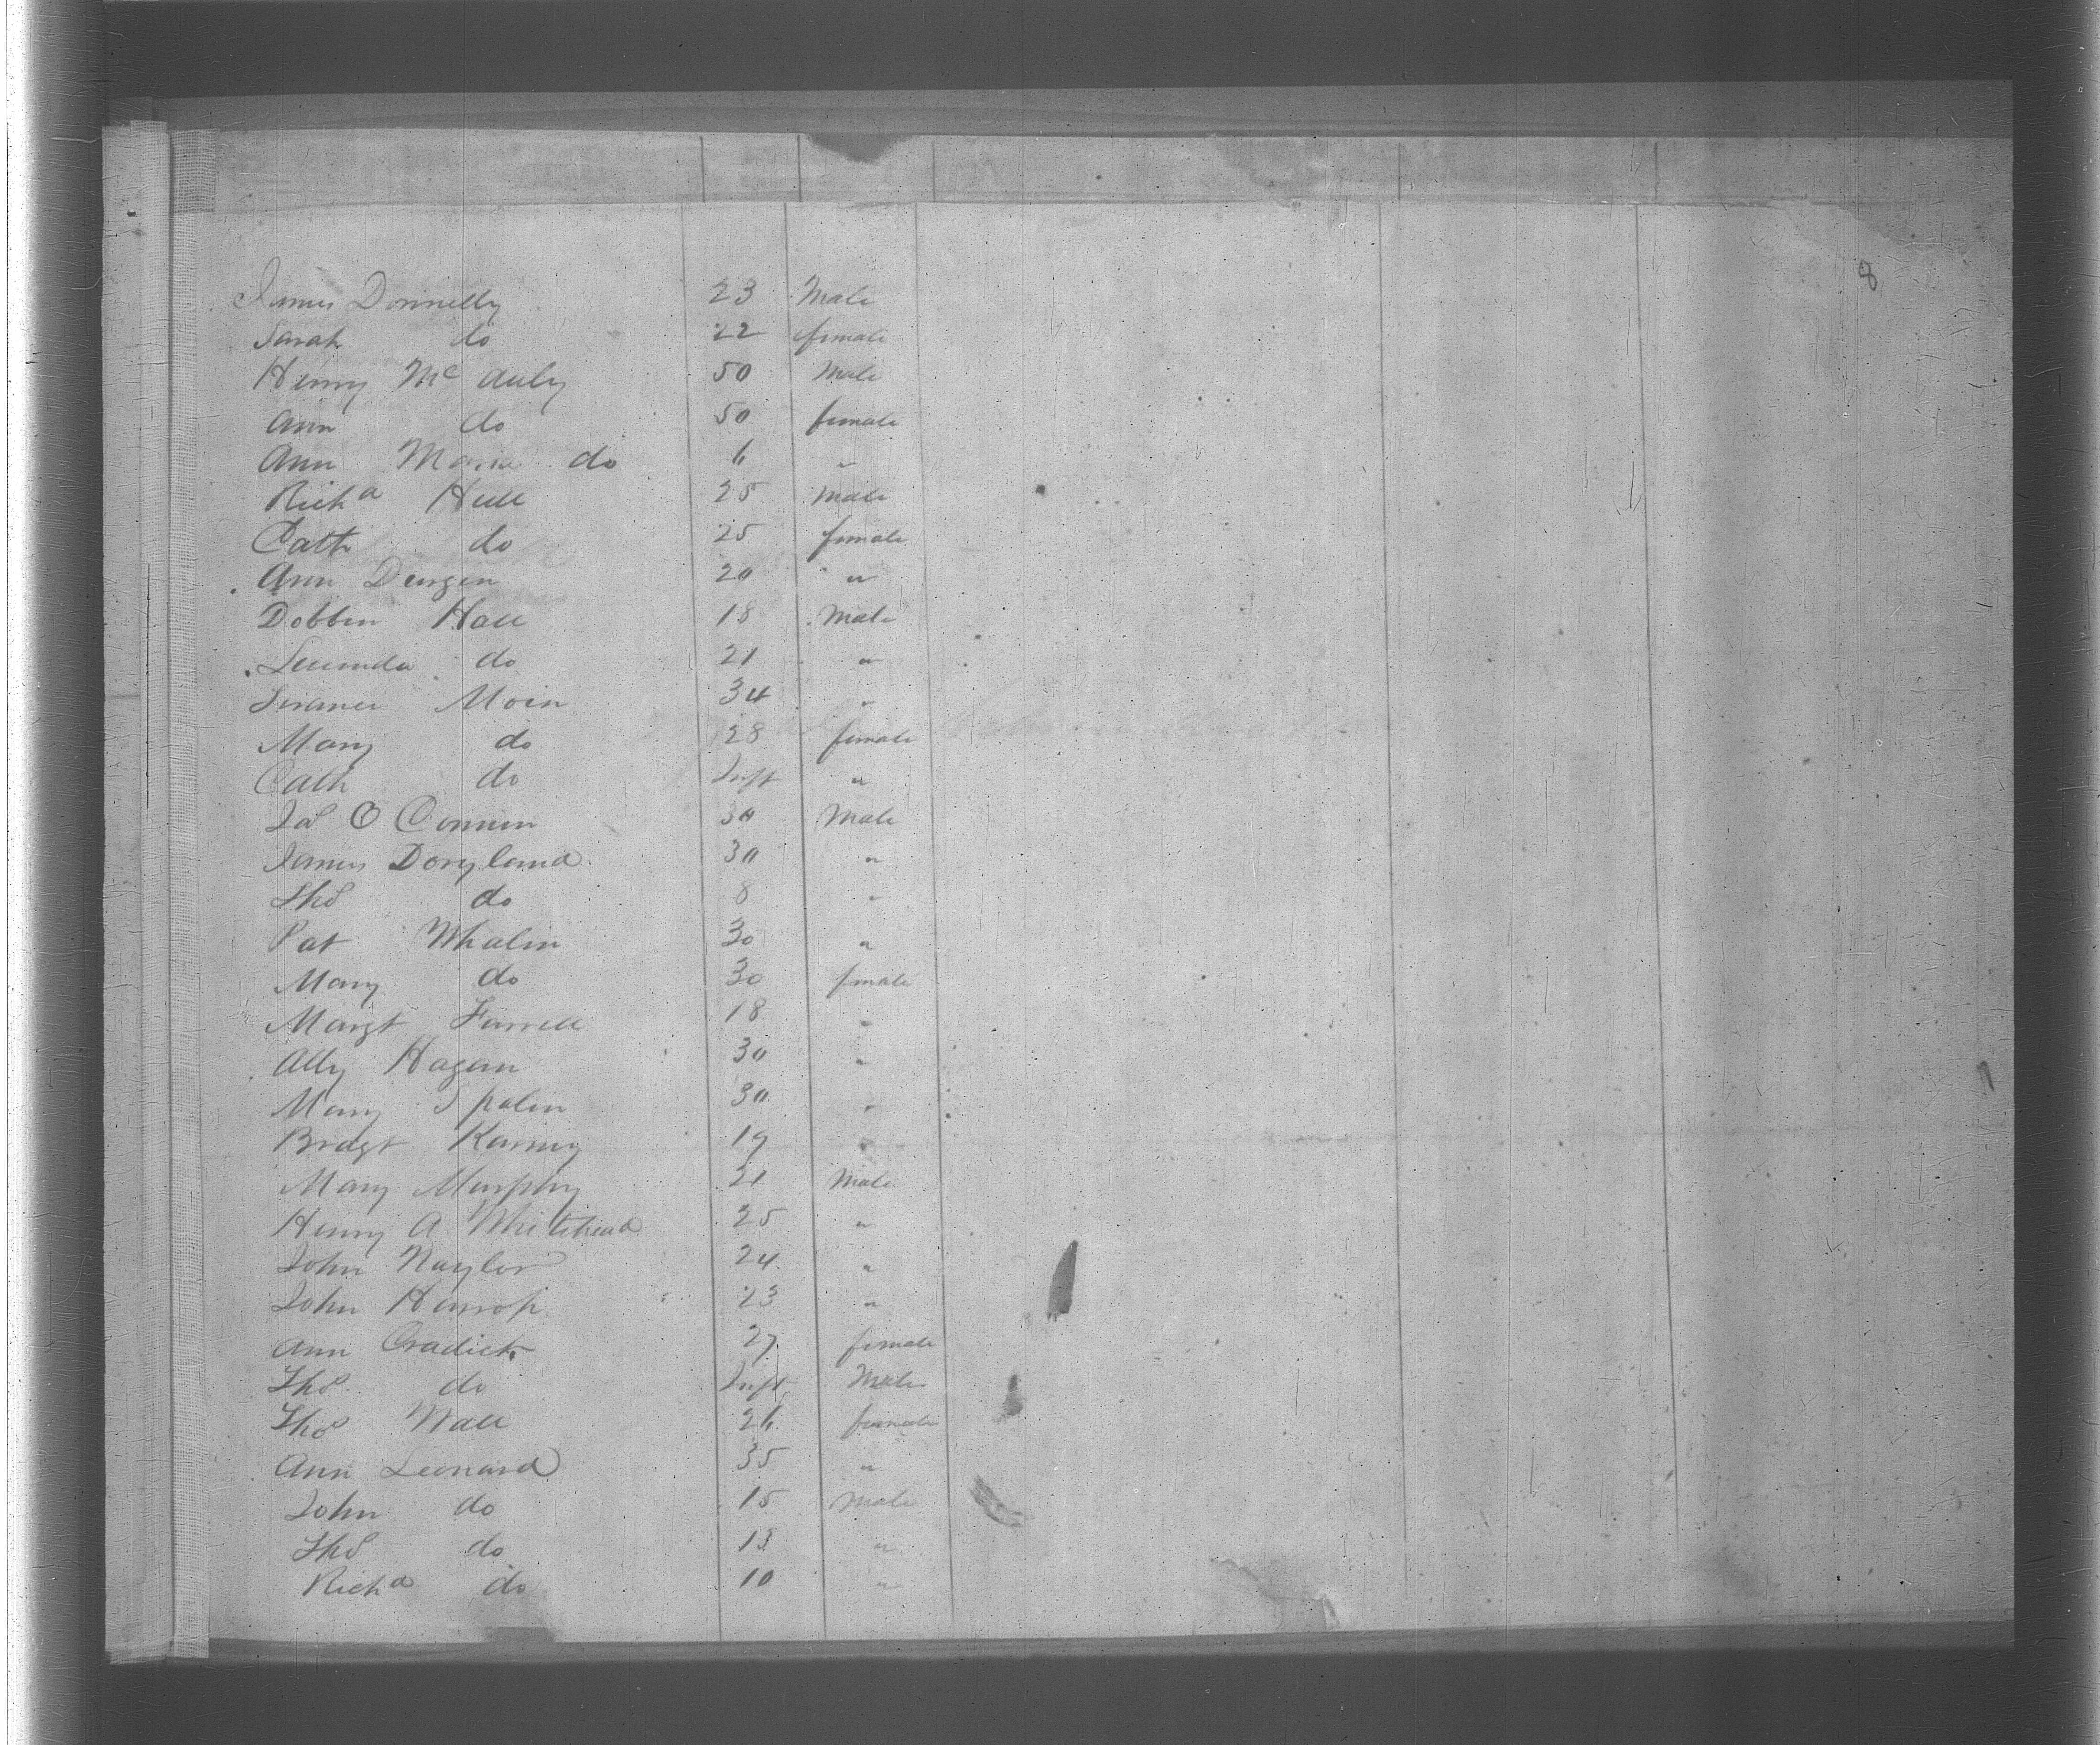 8
James Donnelly 23 Male
Sarah do 22 female
Henry Mc Auly 50 Male
Ann do 50 female
Ann Maria do 6 "
Richd Hull 25 Male
Cath do 25 female
Ann Durgen 20 "
Dobbin Hall 18 Male
Lucinda do 21 "
Moin 34 "
Mary do 28 female
Cath do Inft "
Jas O Connen 30 Male
James Doryland 30 "
Thos do 8 "
Pat Whalin 30 "
Mary do 30 female
Margt Farrell 18 "
Ally Hagan 30 "
Mary Spalin 30 "
Bridgt Karney 19 "
Mary Murphy 21 Male
Henry A Whitehead 25 "
John Naylor 24 "
John Harrop 23 "
Ann Cradick 27 female
Thos do Inft Male
Thos Nall 26 female
Ann Leonard 35 "
John do 15 Male
Thos do 13 "
Richd do 10 "